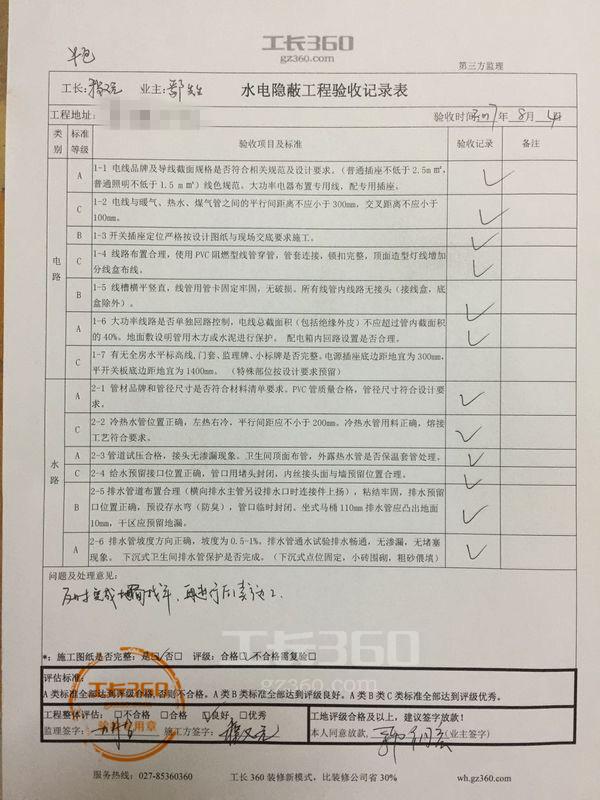 半包
工长360
gz360.com
第三方监理
工长: 业主: 鄢先生
水电隐蔽工程验收记录表
工程地址:
验收时间: 2017年 8月 4日
类别 标准等级 验收项目及标准 验收记录 备注
电路
A 1-1 电线品牌及导线截面规格是否符合相关规范及设计要求。(普通插座不低于2.5m㎡,
普通照明不低于1.5m㎡)线色规范。大功率电器布置专用线,配专用插座。
C 1-2 电线与暖气、热水、煤气管之间的平行间距离不应小于300mm,交叉距离不应小于
100mm。
B 1-3 开关插座定位严格按设计图纸与现场交底要求施工。
C 1-4 线路布置合理,使用PVC阻燃型线管穿管,管套连接,锁扣完整,顶面造型灯线增加
分线盒布线。
B 1-5 线槽横平竖直,线管用管卡固定牢固,无破损。所有线管内线路无接头(接线盒,底
盒除外)。
A 1-6 大功率线路是否单独回路控制,电线总截面积(包括绝缘外皮)不应超过管内截面积
的40%。地面敷设明管用木方或水泥进行保护。 配电箱内回路设置是否合理。
C 1-7 有无全房水平标高线,门套、监理牌、小标牌是否完整。电源插座底边距地宜为300mm,
平开关板底边距地宜为1400mm。 (特殊部位按设计要求预留)
水路
A 2-1 管材品牌和管径尺寸是否符合材料清单要求。PVC管质量合格,管径尺寸符合设计要
求。
C 2-2 冷热水管位置正确,左热右冷,平行间距应不小于200mm。冷热水管用料正确,熔接
工艺符合要求。
A 2-3 管道试压合格,接头无渗漏现象。卫生间顶面布管,外露热水管是否保温套管处理。
C 2-4 给水预留接口位置正确,管口用堵头封闭,内丝接头面与墙预留位置合理。
B 2-5 排水管道布置合理(横向排水主管另设排水口时连接件上扬),粘结牢固,排水预留
口位置正确,预设存水弯(防臭),管口临时封闭。坐式马桶110mm排水管应凸出地面
10mm,干区应预留地漏。
A 2-6 排水管坡度方向正确,坡度为0.5-1%。排水管通水试验排水畅通,无渗漏,无堵塞
现象。 下沉式卫生间排水管保护是否完成。(下沉式点位固定,小砖围砌,粗砂偎填)
问题及处理意见:
*: 施工图纸是否完整: 是☑否□ 评级: 合格☑不合格需复验□
工长360
gz360.com
评估标准:
A类标准全部达到评级合格,否则不合格。A类B类标准全部达到评级良好。A类B类C类标准全部达到评级优秀。
工程整体评估: □不合格 □合格 ☑良好 □优秀
工地评级合格及以上,建议签字放款!
监理签字: 施工方签字:
本人同意放款, (业主签字)
工长360
验收专用章
服务热线: 027-85360360 工长360装修新模式,比装修公司省30% wh.gz360.com